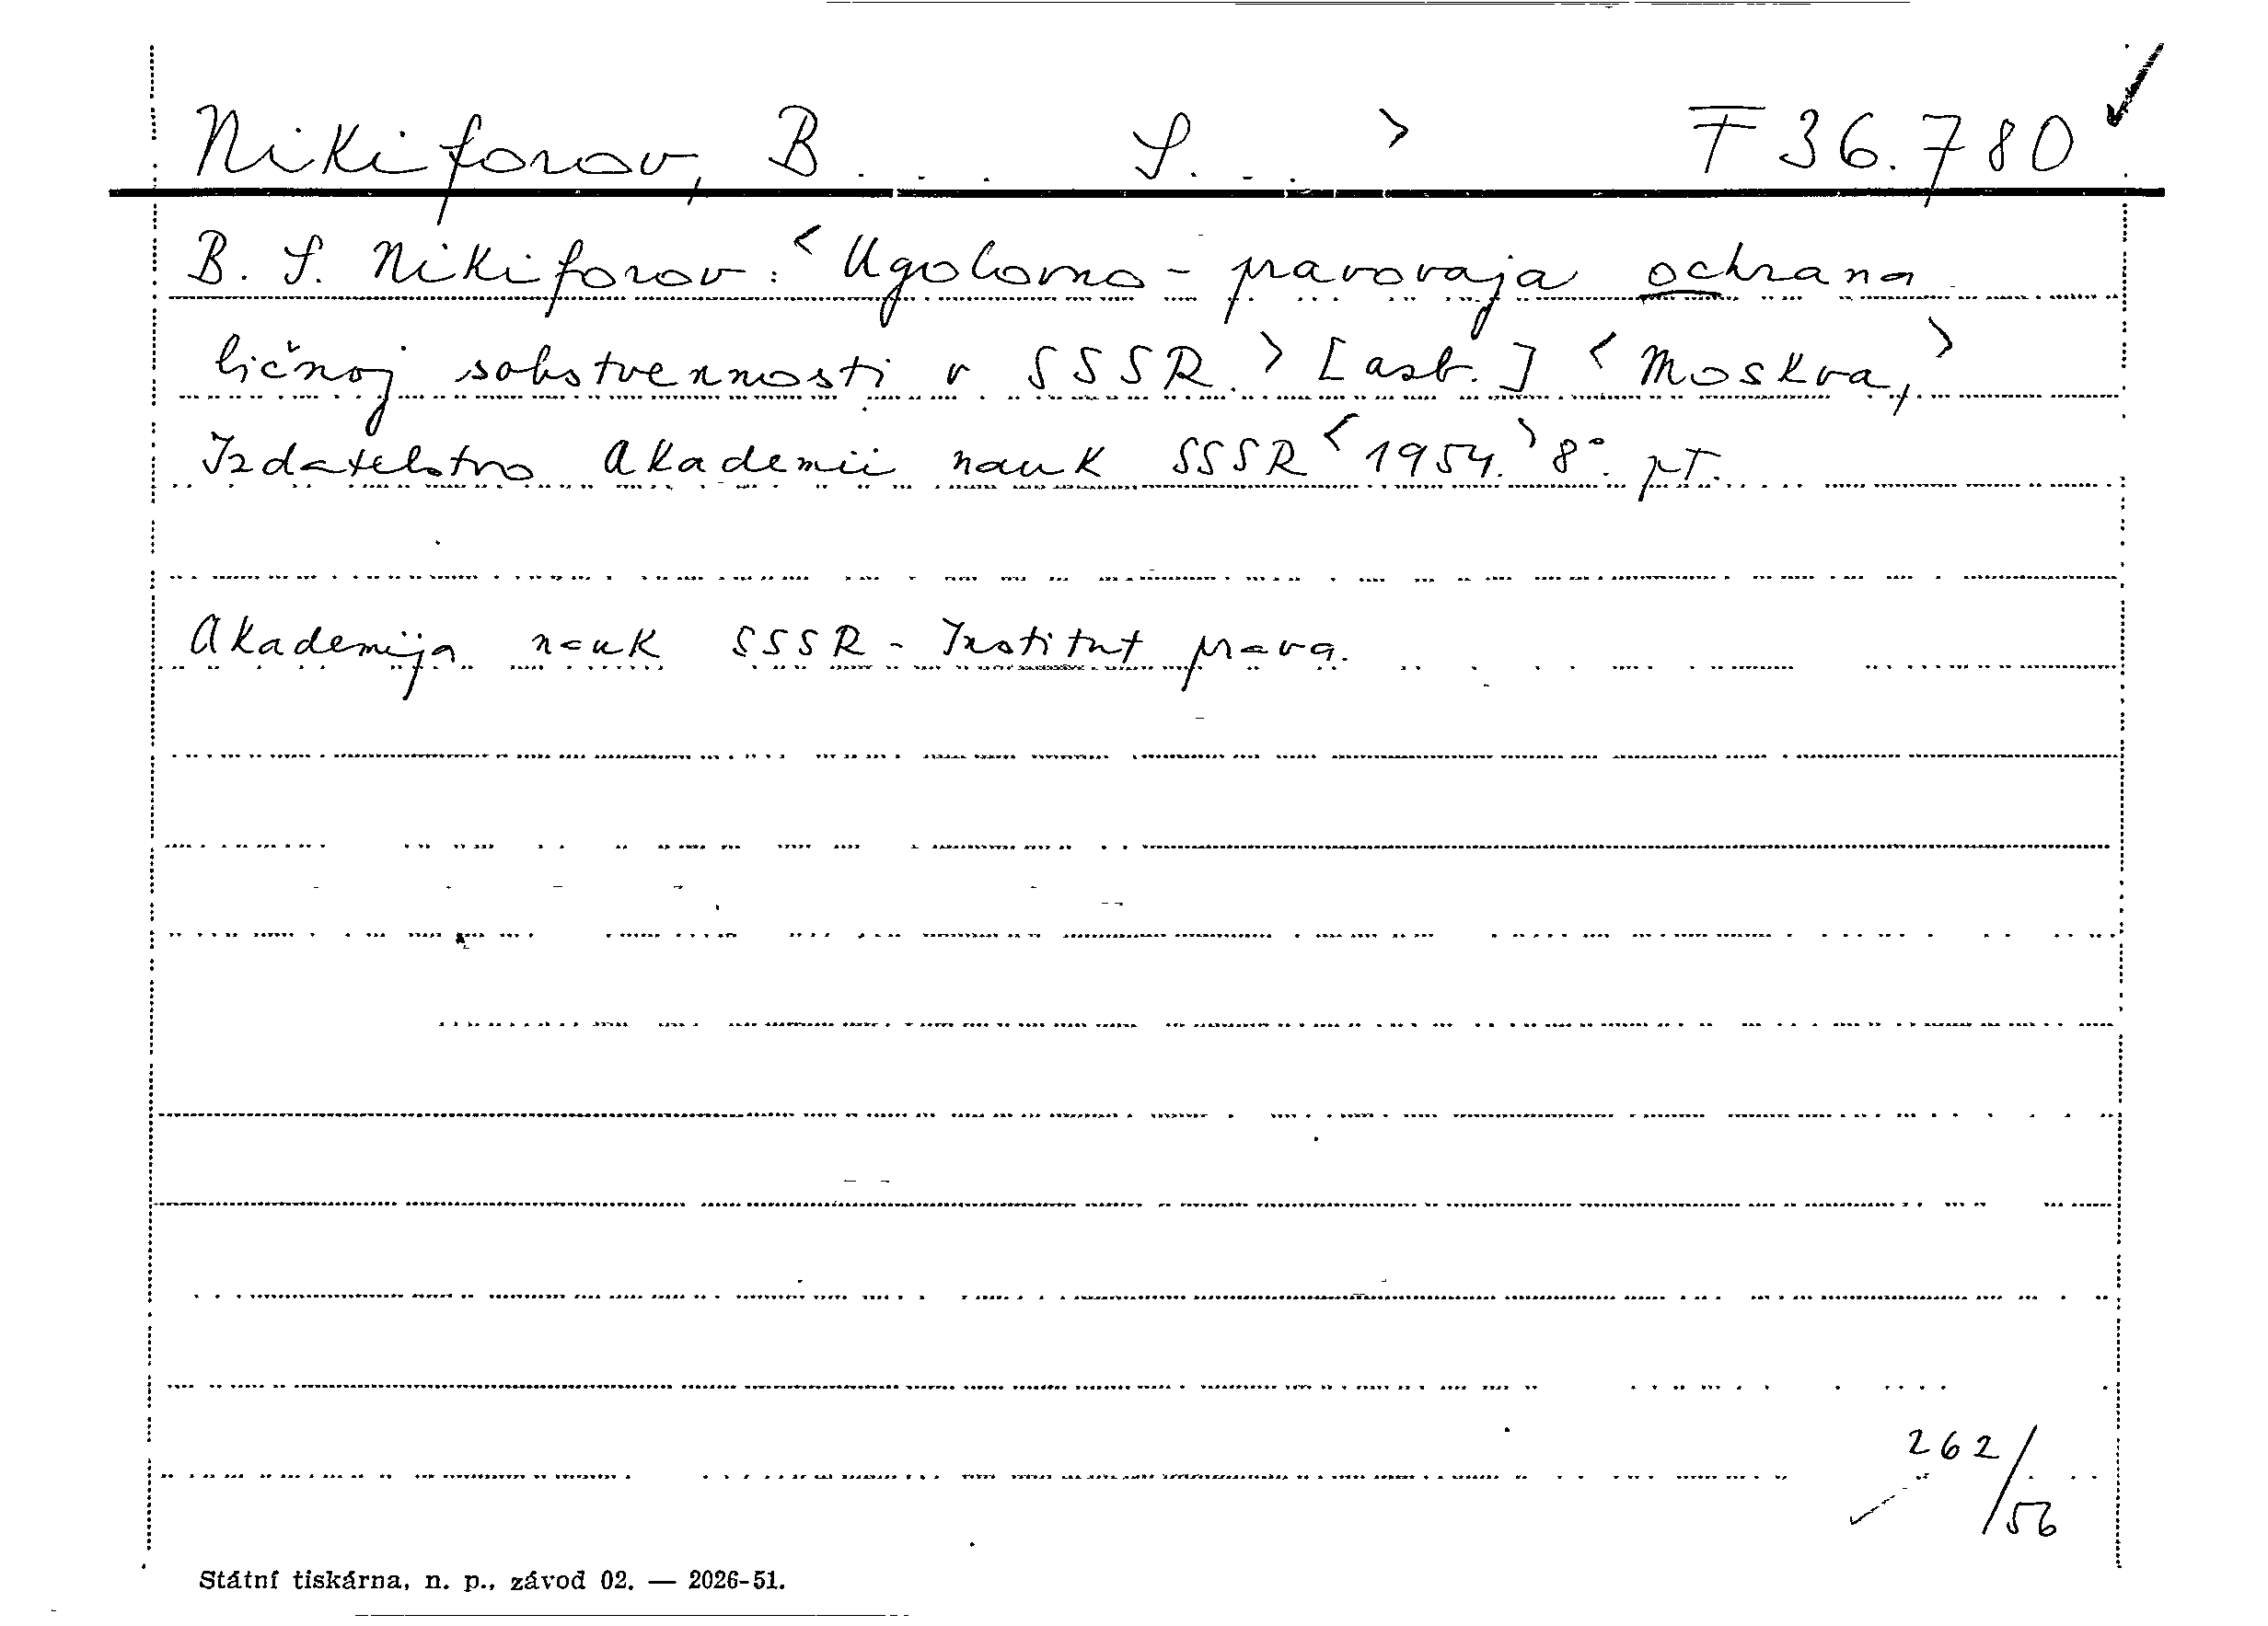 Nikiforov, B... S... > F 36.780 ✓
B. S. Nikiforov: <Ugolovno-pravovaja ochrana
ličnoj sobstvennosti v SSSR.> [azb.] <Moskva,>
Izdatelstvo Akademii nauk SSSR <1954.> 8°. pT.
Akademija nauk SSSR - Institut prava.
262/56
Státní tiskárna, n. p., závod 02. — 2026-51.